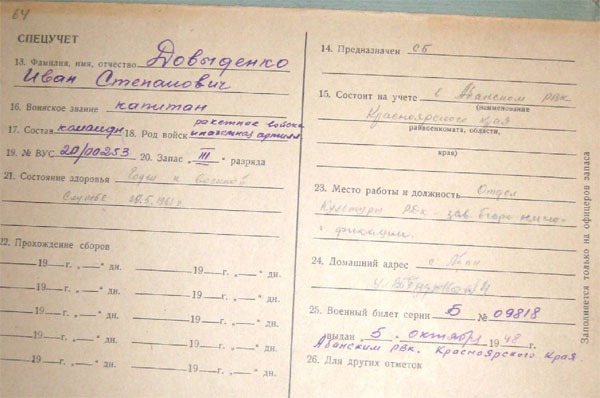 64
СПЕЦУЧЕТ
13. Фамилия, имя, отчество Довыденко
Иван Степанович
16. Воинское звание капитан
17. Состав командн. 18. Род войск ракетные войска
и наземная артилл
19. № ВУС 20/00253 20. Запас „III" разряда
21. Состояние здоровья Годен к военной
службе 20.5.1961 г.
22. Прохождение сборов
—19—г. „—" дн. —19—г. „—" дн.
—19—г. „—" дн. —19—г. „—" дн.
—19—г. „—" дн. —19—г. „—" дн.
—19—г. „—" дн. —19—г. „—" дн.
—19—г. „—" дн. —19—г. „—" дн.
14. Предназначен ОБ
15. Состоит на учете в Абанском РВК
(наименование
Красноярского края
райвоенкомата, области,
края)
23. Место работы и должность Отдел
культуры РВК - зав бюро кино-
фикации.
24. Домашний адрес с Абан
25. Военный билет серии Б № 09818
выдан „5" октября 1948
Абанским РВК. Красноярского Края
26. Для других отметок
Заполняется только на офицеров запаса